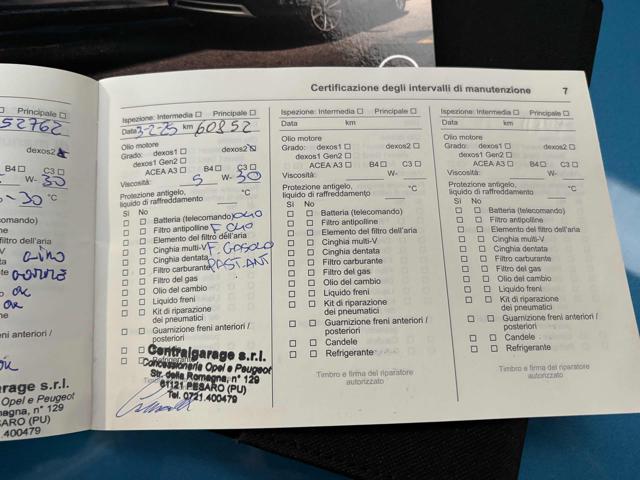 Certificazione degli intervalli di manutenzione 7
Principale
52762
dexos2
C3
W- 30
-30 °C
comando)
filtro dell'aria
ok
ok
arage s.r.l.
Opel e Peugeot
magna, n° 129
SARO (PU)
.400479
Ispezione: Intermedia Principale
Data 3-2-25 km 60852
Olio motore
Grado: dexos1 dexos2
dexos1 Gen2
ACEA A3 B4 C3
Viscosità: 5 W- 30
Protezione antigelo,
liquido di raffreddamento °C
Sì No
Batteria (telecomando) olio
Filtro antipolline F olio
Elemento del filtro dell'aria
Cinghia multi-V F. Gasolio
Cinghia dentata
Filtro carburante PAST. ANT
Filtro del gas
Olio del cambio
Liquido freni
Kit di riparazione
dei pneumatici
Guarnizione freni anteriori /
posteriori
Refrigerante
Centralgarage s.r.l.
Concessionaria Opel e Peugeot
Str. della Romagna, n° 129
61121 PESARO (PU)
Tel. 0721.400479
Ispezione: Intermedia Principale
Data km
Olio motore
Grado: dexos1 dexos2
dexos1 Gen2
ACEA A3 B4 C3
Viscosità: W-
Protezione antigelo,
liquido di raffreddamento °C
Sì No
Batteria (telecomando)
Filtro antipolline
Elemento del filtro dell'aria
Cinghia multi-V
Cinghia dentata
Filtro carburante
Filtro del gas
Olio del cambio
Liquido freni
Kit di riparazione
dei pneumatici
Guarnizione freni anteriori /
posteriori
Candele
Refrigerante
Timbro e firma del riparatore
autorizzato
Ispezione: Intermedia Principale
Data km
Olio motore
Grado: dexos1 dexos2
dexos1 Gen2
ACEA A3 B4 C3
Viscosità: W-
Protezione antigelo,
liquido di raffreddamento °C
Sì No
Batteria (telecomando)
Filtro antipolline
Elemento del filtro dell'aria
Cinghia multi-V
Cinghia dentata
Filtro carburante
Filtro del gas
Olio del cambio
Liquido freni
Kit di riparazione
dei pneumatici
Guarnizione freni anteriori /
posteriori
Candele
Refrigerante
Timbro e firma del riparatore
autorizzato